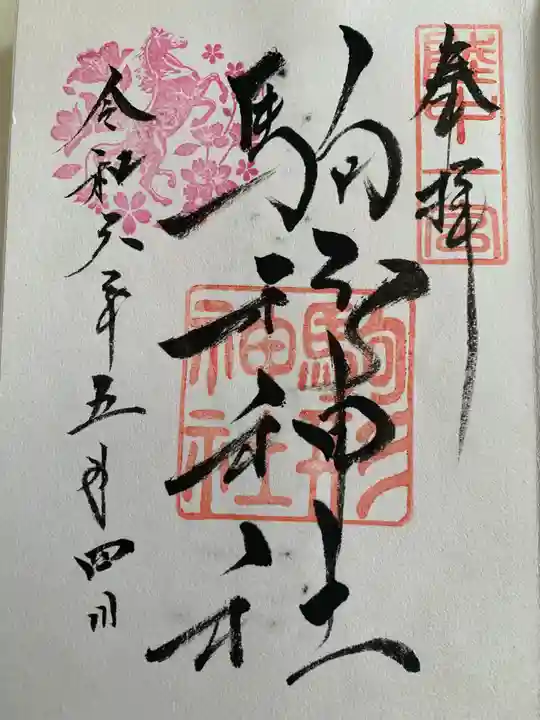 陸中一宮
奉拝
駒形神社
駒形
神社
令和六年五月四日